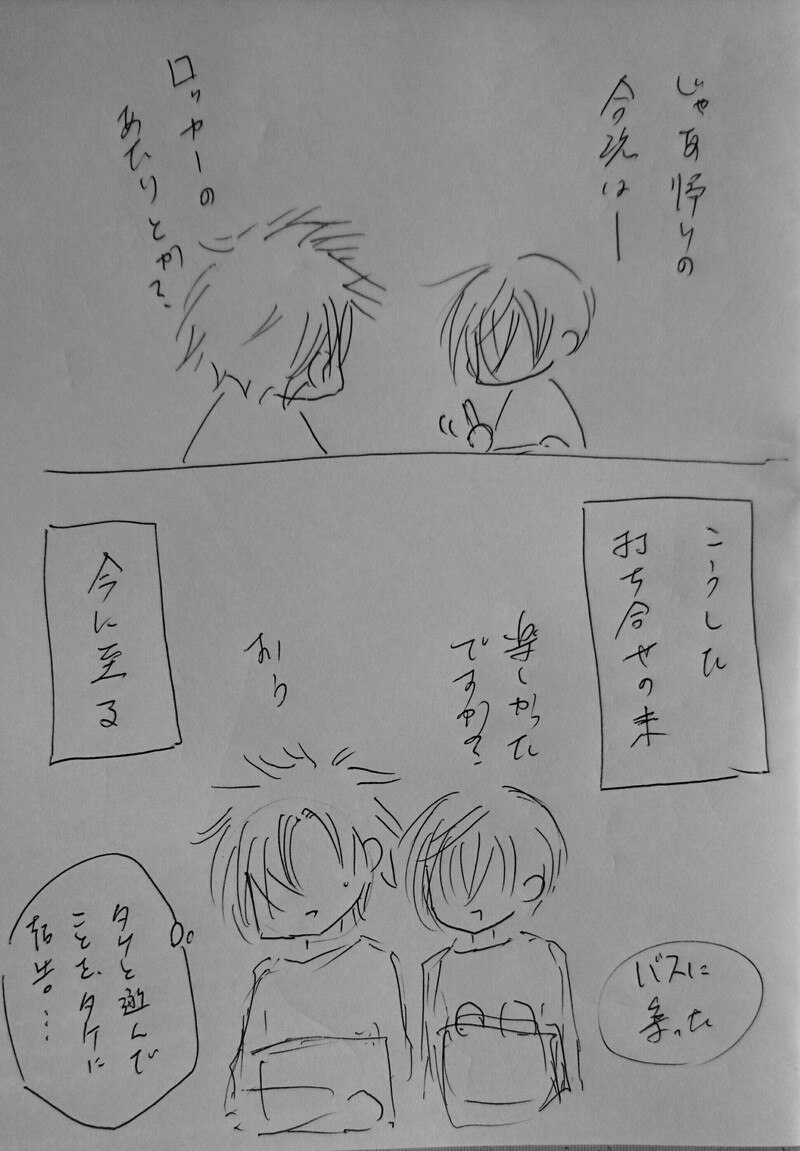 じゃあ帰りの
合流はー
ロッカーの
あたりとか?
こうした
打ち合せの末
楽しかった
ですかの?
おう
今に至る
バスに
乗った
タケと遊んで
ことを、タケに
報告…